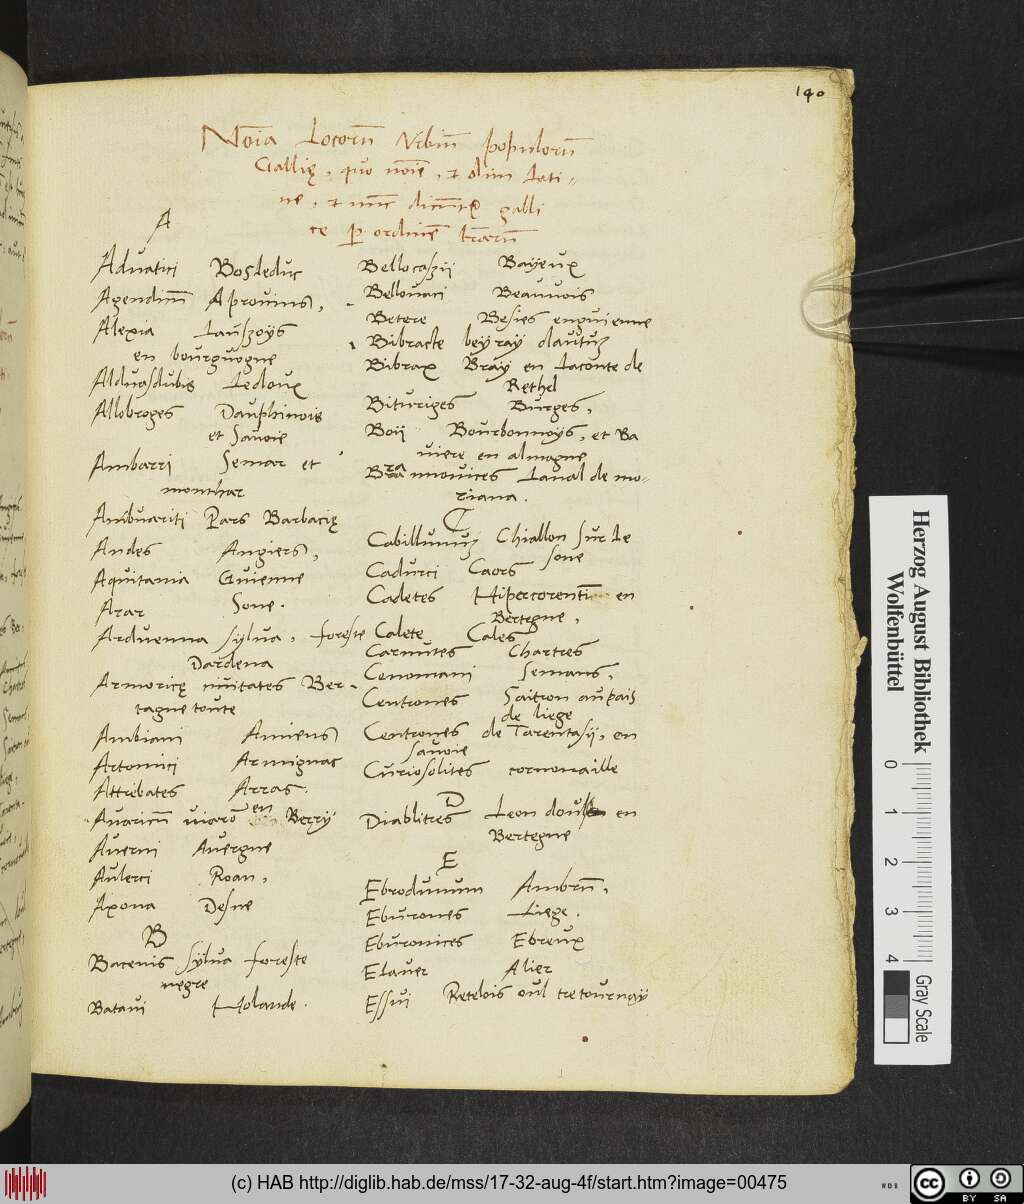 140
Nōīa Locorū Vrbiū populorū
Gallię, quo nōīe, et olim Lati-
ne, et nūc dicūtur galli
ce per ordinē lrārū
A
Aduatici Bosleduc
Agendicū Aprouins,
Alexia Lauszoys
en bourguogne
Alduasdubis Ledoux
Allobroges Dauphinois
et Sauoie
Ambarri Semar et
monthar
Ambuariti Pars Barbacię
Andes Angiers,
Aquitania Guienne
Arar Sone.
Arduenna sylua, foreste
Dardena
Armoricę ciuitates Ber-
tagne toute
Ambiani Amiens
Artomici Armignac
Attrebates Arras.
Auaricū en Berry
Auerni Auergne
Aulerci Roan,
Axona Desne
B
Bacenis sylua foreste
negre
Bataui Holande.
Bellocazii Bayeux
Bellouaci Beauuois
Betere Besies enguienne
Bibracte beyray dautuz
Bibrax Bray en Laconte de
Rethel
Bituriges Burges,
Boii Bourbonnoys, et Ba
uiere en almagne
Brannouices Laual de mo-
riana.
C
Cabillunuz Chiallon sur le
sone
Cadurci Caors
Cadetes Hipercorentī en
Bertegne,
Calete Cales
Carnutes Chartres
Cenomani Semans,
Centrones Saitron aupais
de liege
Centrones de Tarentasÿ, en
sauoie
Curiosolites cornouaille
D
Diablitres Leon en
Bertegne
E
Ebrodunum Ambrū,
Eburones Liege.
Eburonices Ebreux
Elauer Alier
Essui Retelois oul tretournay
Herzog August Bibliothek
Wolfenbüttel
0 1 2 3 4
Gray Scale
(c) HAB http://diglib.hab.de/mss/17-32-aug-4f/start.htm?image=00475
WDB
cc BY SA